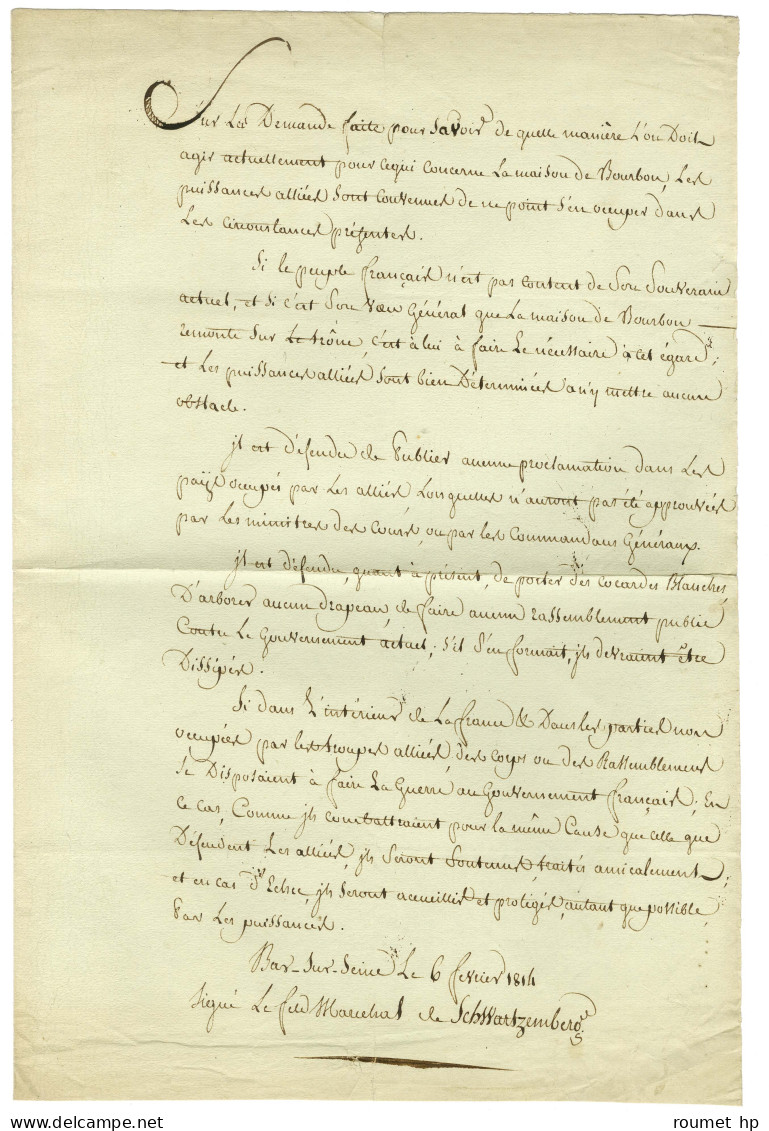 Sur La Demande faite pour Savoir de quelle manière L'on Doit
agir actuellement pour cequi concerne La maison de Bourbon, Les
puissances alliées sont convenues de ne point s'en occuper dans
Les circonstances présentes.
Si le peuple français n'est pas content de Son Souverain
actuel, et si c'est Son vœu Général que La maison de Bourbon
remonte Sur Le trône c'est à lui à faire Le nécessaire à cet égard;
et Les puissances alliées sont bien Déterminées a n'y mettre aucun
obstacle.
jl est deffendu de Publier aucune proclamation dans Les
pays occupés par Les alliés Lorsquelles n'auront pas été approuvées
par Les ministres des Cours, ou par les Commandans Généraux.
jl est deffendu, quant à présent, de porter des cocardes Blanches,
D'arborer aucun drapeau, de faire aucun rassemblement public
Contre Le Gouvernement actuel; s'il s'en formait, jls devraient être
Dissipés.
Si dans L'intérieur de La france & Dans les parties non
occupées par les troupes alliées des corps ou des Rassemblemens
se Disposaient à faire La Guerre au Gouvernement français; En
ce cas, Comme jls combattraient pour la même Cause que celle que
Défendent Les alliés, jls Seront Soutenus, traités amicalement;
et en cas d'Echec, jls seront accueillis et protégés, autant que possible,
Par Les puissances.
Bar-Sur-Seine Le 6 fevrier 1814
Signé Le feld Marechal de Schwartzemberg.
roumet hp